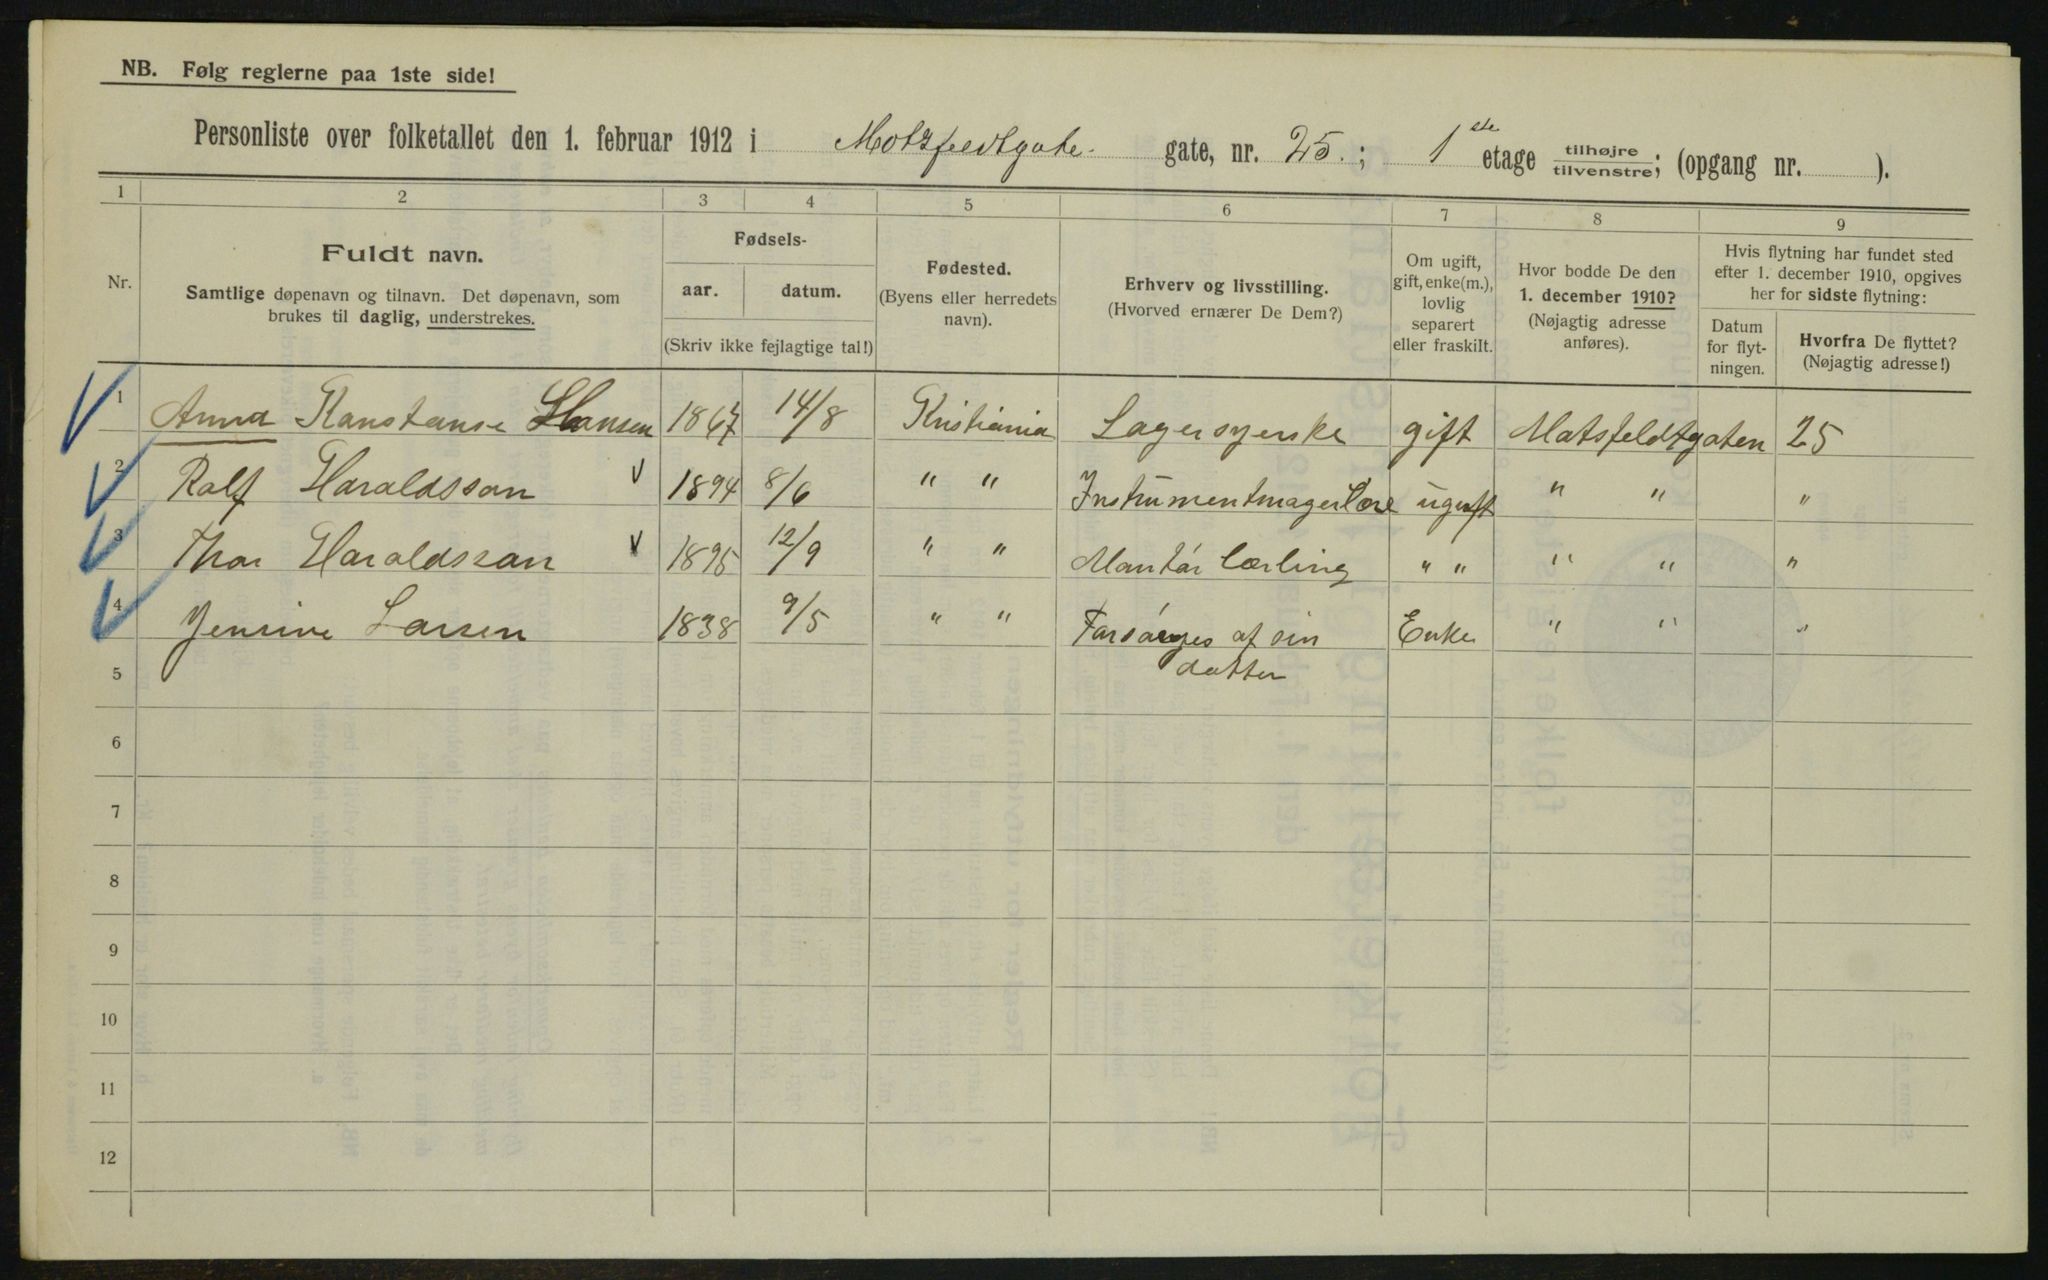 NB. Følg reglerne paa 1ste side!
Personliste over folketallet den 1. februar 1912 i Motzfeldtgate. gate, nr. 25.; 1ste etage tilhøjre/tilvenstre; (opgang nr. ).
1 2 3 4 5 6 7 8 9
Nr.
Fuldt navn.
Samtlige døpenavn og tilnavn. Det døpenavn, som
brukes til daglig, understrekes.
Fødsels-
aar. datum.
(Skriv ikke fejlagtige tal!)
Fødested.
(Byens eller herredets
navn).
Erhverv og livsstilling.
(Hvorved ernærer De Dem?)
Om ugift,
gift, enke(m.),
lovlig
separert
eller fraskilt.
Hvor bodde De den
1. december 1910?
(Nøjagtig adresse
anføres).
Hvis flytning har fundet sted
efter 1. december 1910, opgives
her for sidste flytning:
Datum
for flyt-
ningen.
Hvorfra De flyttet?
(Nøjagtig adresse!)
1 Anna Konstanse Hansen 1867 14/8 Kristiania Lagersyerske gift Motsfeldtgaten 25
2 Rolf Haraldsson 1894 8/6 " " Instrumentmagerlære ugift " " "
3 Thor Haraldsson 1895 12/9 " " Montór Lærling " " " " "
4 Jensine Larsen 1838 9/5 " " Forsórges af sin Enke " " "
datter
5
6
7
8
9
10
11
12